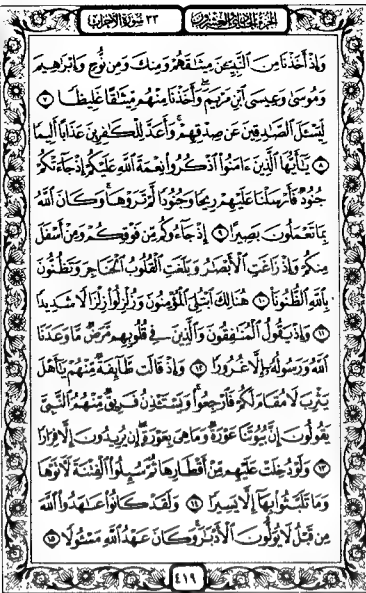 ٣٣ سورة الأحزاب
الجزء الحادي والعشرون
وَإِذْ أَخَذْنَا مِنَ ٱلنَّبِيِّـۧنَ مِيثَٰقَهُمْ وَمِنكَ وَمِن نُّوحٍ وَإِبْرَٰهِيمَ
وَمُوسَىٰ وَعِيسَى ٱبْنِ مَرْيَمَ ۖ وَأَخَذْنَا مِنْهُم مِّيثَٰقًا غَلِيظًا ٧
لِّيَسْـَٔلَ ٱلصَّٰدِقِينَ عَن صِدْقِهِمْ ۚ وَأَعَدَّ لِلْكَٰفِرِينَ عَذَابًا أَلِيمًا
٨ يَٰٓأَيُّهَا ٱلَّذِينَ ءَامَنُوا۟ ٱذْكُرُوا۟ نِعْمَةَ ٱللَّهِ عَلَيْكُمْ إِذْ جَآءَتْكُمْ
جُنُودٌ فَأَرْسَلْنَا عَلَيْهِمْ رِيحًا وَجُنُودًا لَّمْ تَرَوْهَا ۚ وَكَانَ ٱللَّهُ
بِمَا تَعْمَلُونَ بَصِيرًا ٩ إِذْ جَآءُوكُم مِّن فَوْقِكُمْ وَمِنْ أَسْفَلَ
مِنكُمْ وَإِذْ زَاغَتِ ٱلْأَبْصَٰرُ وَبَلَغَتِ ٱلْقُلُوبُ ٱلْحَنَاجِرَ وَتَظُنُّونَ
بِٱللَّهِ ٱلظُّنُونَا۠ ١٠ هُنَالِكَ ٱبْتُلِىَ ٱلْمُؤْمِنُونَ وَزُلْزِلُوا۟ زِلْزَالًا شَدِيدًا
١١ وَإِذْ يَقُولُ ٱلْمُنَٰفِقُونَ وَٱلَّذِينَ فِى قُلُوبِهِم مَّرَضٌ مَّا وَعَدَنَا
ٱللَّهُ وَرَسُولُهُۥٓ إِلَّا غُرُورًا ١٢ وَإِذْ قَالَت طَّآئِفَةٌ مِّنْهُمْ يَٰٓأَهْلَ
يَثْرِبَ لَا مُقَامَ لَكُمْ فَٱرْجِعُوا۟ ۚ وَيَسْتَـْٔذِنُ فَرِيقٌ مِّنْهُمُ ٱلنَّبِىَّ
يَقُولُونَ إِنَّ بُيُوتَنَا عَوْرَةٌ وَمَا هِىَ بِعَوْرَةٍ ۖ إِن يُرِيدُونَ إِلَّا فِرَارًا
١٣ وَلَوْ دُخِلَتْ عَلَيْهِم مِّنْ أَقْطَارِهَا ثُمَّ سُئِلُوا۟ ٱلْفِتْنَةَ لَءَاتَوْهَا
وَمَا تَلَبَّثُوا۟ بِهَآ إِلَّا يَسِيرًا ١٤ وَلَقَدْ كَانُوا۟ عَٰهَدُوا۟ ٱللَّهَ
مِن قَبْلُ لَا يُوَلُّونَ ٱلْأَدْبَٰرَ ۚ وَكَانَ عَهْدُ ٱللَّهِ مَسْـُٔولًا ١٥
٤١٩